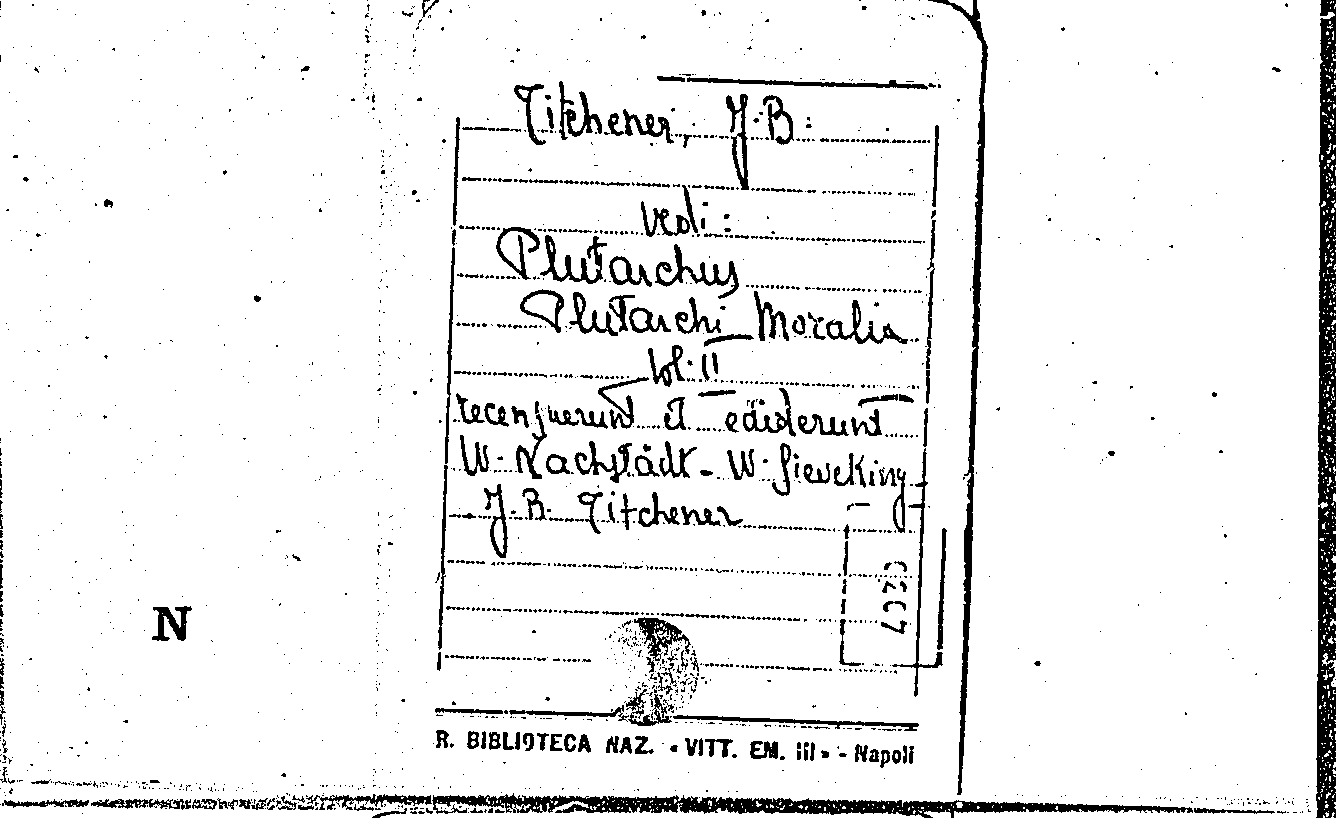 Titchener, J. B.
vedi:
Plutarchus
Plutarchi Moralia
Vol. II
recensuerunt et ediderunt
W. Nachstädt - W. Sieveking
J. B. Titchener
N
R. BIBLIOTECA NAZ. « VITT. EM. III » - Napoli